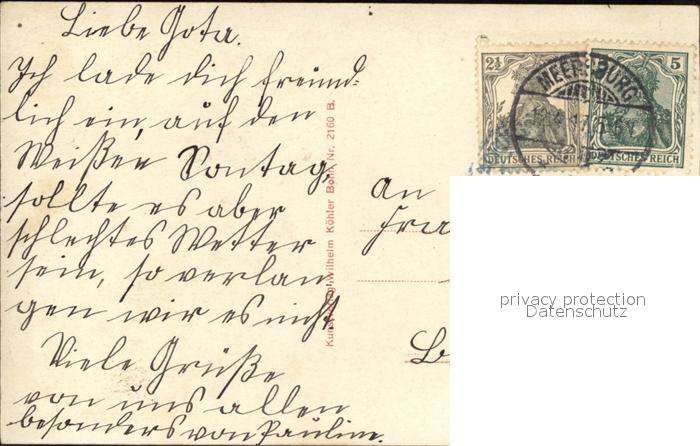 Liebe Gota.
Ich lade dich freund-
lich ein, auf den
Weißen Sontag,
sollte es aber
schlechtes Wetter
sein, so verlan
gen wir es nicht
Viele Grüße
von uns allen
besonders von Pauline.
Wilhelm Köhler Bonn Nr. 2160 B.
2½
5
DEUTSCHES REICH
DEUTSCHES REICH
An
privacy protection
Datenschutz